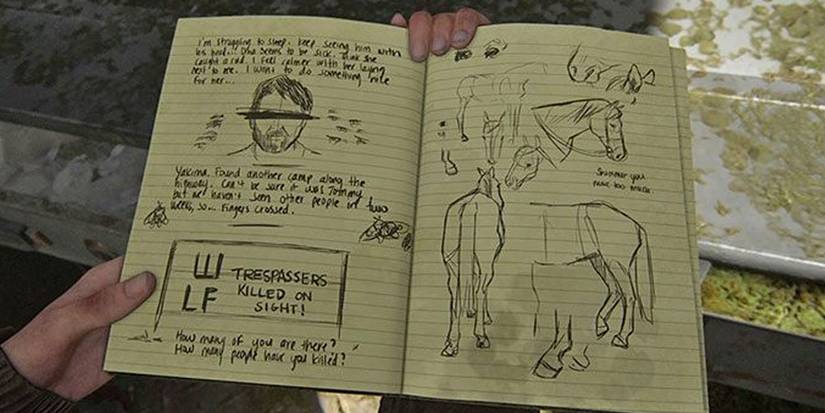 I'm struggling to sleep. Keep seeing him with
his head... Dina seems to be sick. Think she
caught a cold. I feel calmer with her laying
next to me. I want to do something nice
for her...
Yakima. Found another camp along the
highway. Can't be sure it was Tommy
but we haven't seen other people in two
weeks, so... Fingers crossed.
W
LF
TRESPASSERS
KILLED ON
SIGHT!
How many of you are there?
How many people have you killed?
Shimmer you
move too much